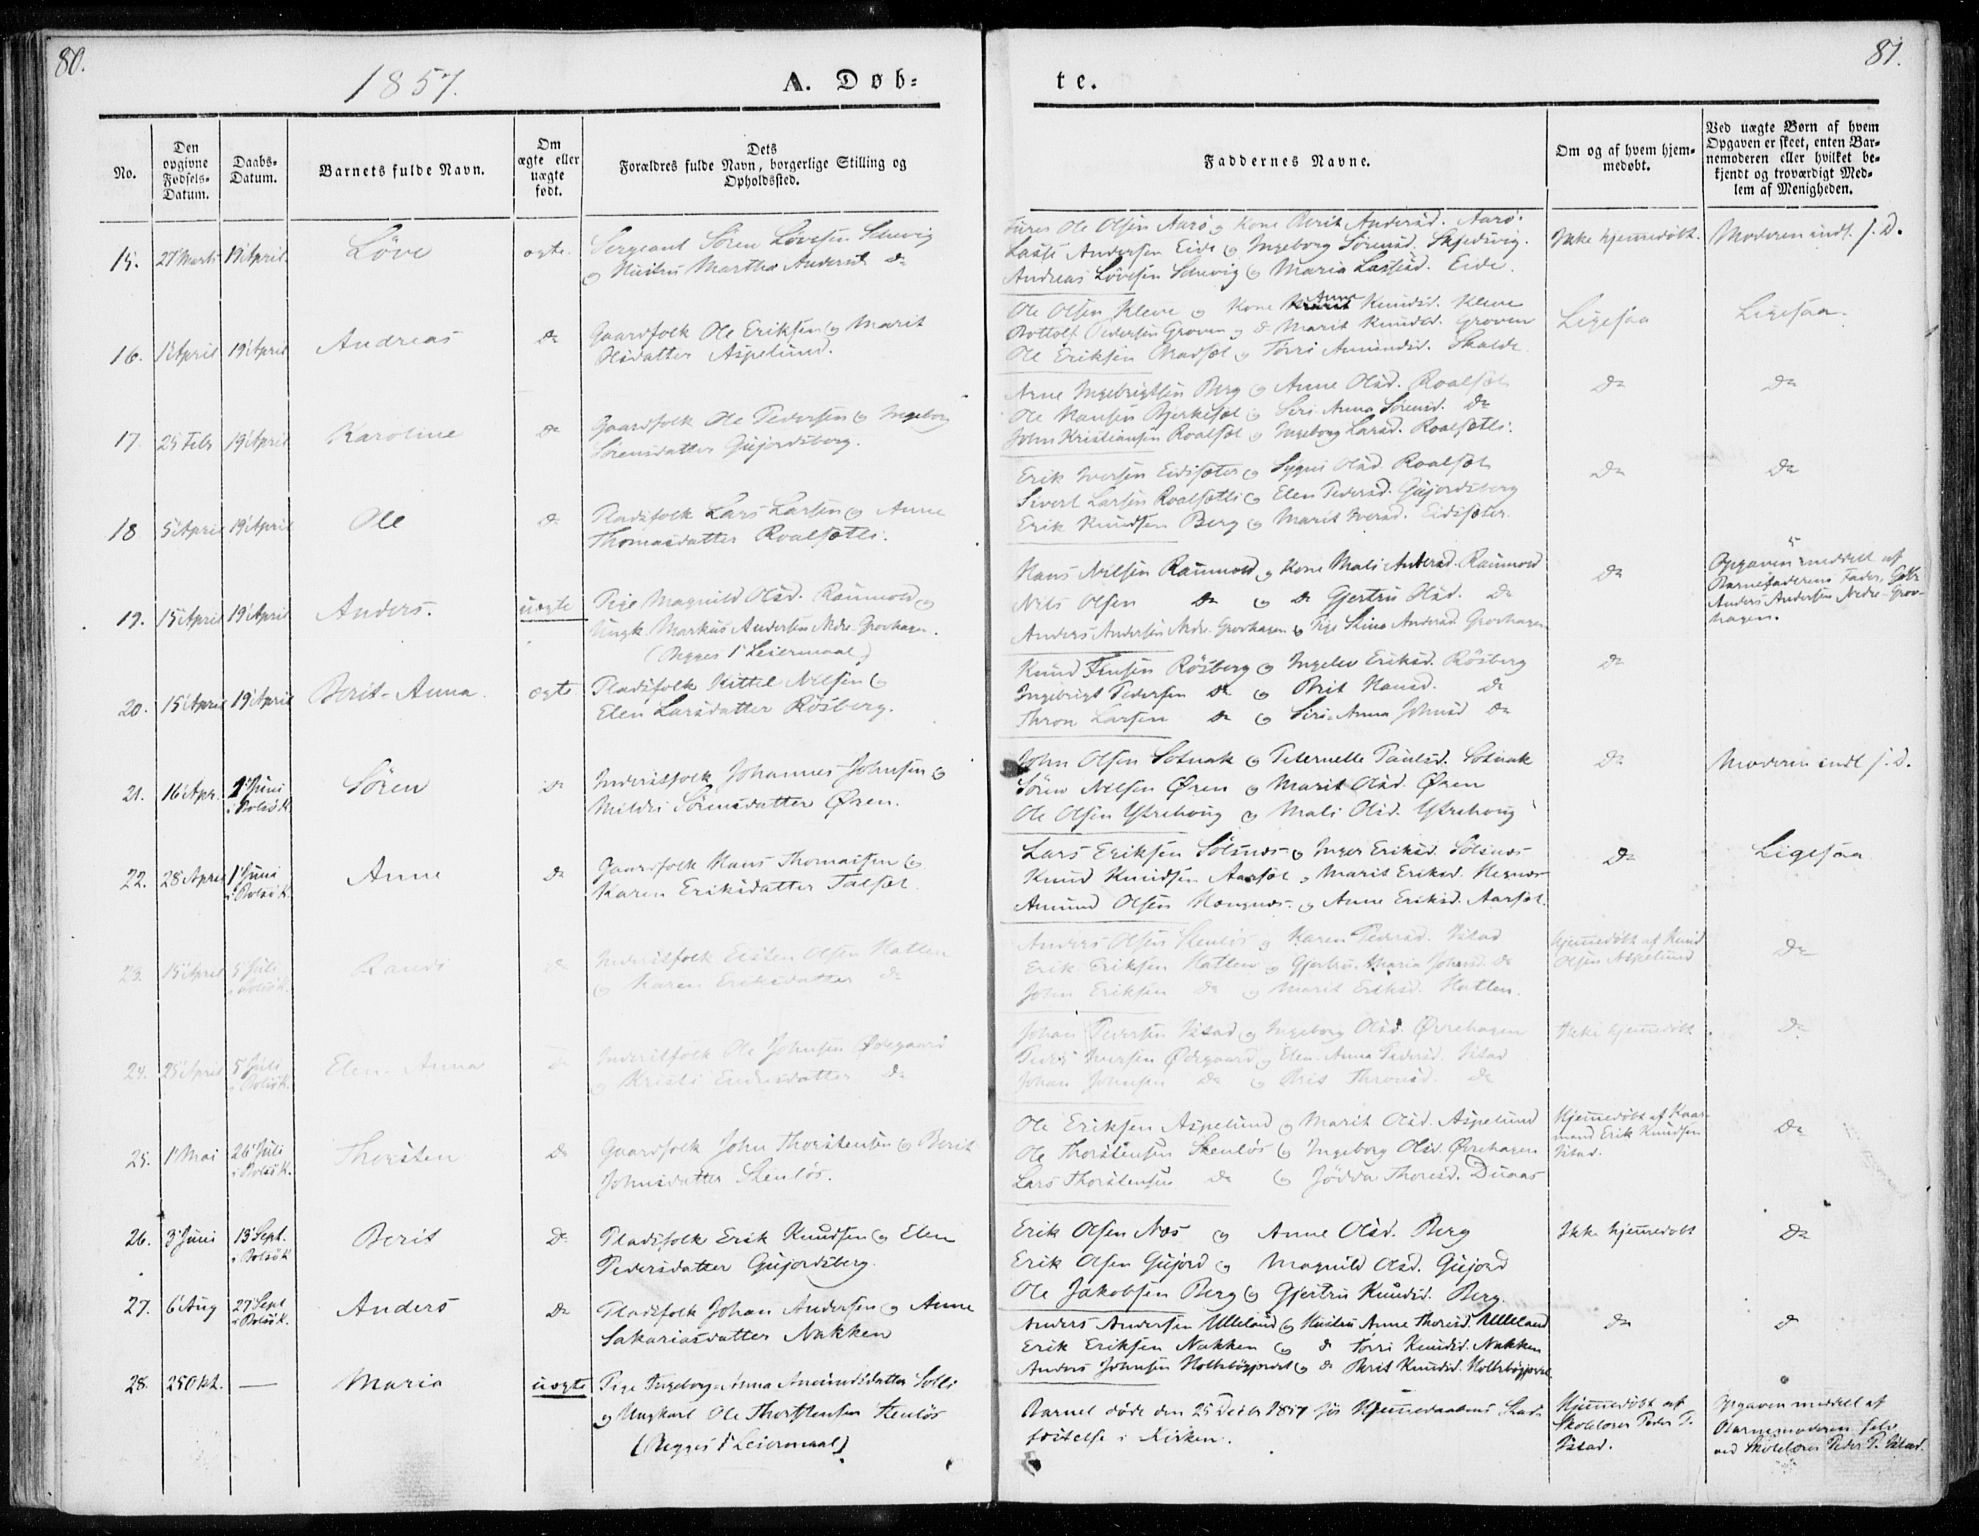 80.
1857.
A. Døb=
No.
Den opgivne Fødsels-Datum.
Daabs-Datum.
Barnets fulde Navn.
Om ægte eller uægte født.
Dets Forældres fulde Navn, borgerlige Stilling og Opholdssted.
15. 27 Marts 19 April Löve ægte Sergeant Sören Lövesen
og Hustru Martha Andersd. Do
16. 1 April 19 April Andreas Do Gaardfolk Ole Eriksen og Marit
Olsdatter Aspelund.
17. 25 Febr 19 April Karoline Do Gaardfolk Ole Pedersen og Ingeborg
Sörensdatter Gujordsberg.
18 5 April 19 April Ole Do Pladsfolk Lars Larsen og Anne
Thomasdatter Roalsætli.
19. 15 April 19 April Anders. uægte Pige Magnild Olsd. Raumold og
Ungk. Markus Andersen Nedre Grovhagen.
(Begges 1ste Leiermaal)
20. 15 April 19 April Berit-Anna. ægte Pladsfolk Kittel Nilsen og
Elen Larsdatter Rösberg.
21. 16 Apr. 1 Juni i Bolsö K. Sören Do Inderstfolk Johannes Johnsen og
Mildri Sörensdatter Øren.
22. 28 April 1 Juni i Bolsö K. Anne Do Gaardfolk Hans Thomassen og
Karen Eriksdatter
23. 15 April 5 Juli i Bolsö K. Randi Do Inderstfolk Esten Olsen Hatlen
og Karen Eriksdatter Do
24. 25 April 5 Juli i Bolsö K. Elen-Anna Do Inderstfolk Ole Johnsen Ødegaard
og Kristi Endresdatter Do
25. 1 Mai 26 Juli i Bolsö K. Thorsten Do Gaardfolk John Thorstensen og Berit
Johnsdatter Stenlös.
26. 3 Juni 13 Sept. i Bolsö K. Berit Do Pladsfolk Erik Knudsen og Elen
Pedersdatter Gujordsberg.
27. 6 Aug 27 Sept i Bolsö K. Anders Do Pladsfolk Johan Andersen og Anne
Sakariasdatter Nakken
28. 25 Okt. — Maria uægte Pige Ingeborg-Anna Amundsdatter Solli
og Ungkarl Ole Thorstensen Stenlös
(Begges 1ste Leiermaal)
81.
te.
Faddernes Navne.
Om og af hvem hjemmedøbt.
Ved uægte Børn af hvem Opgaven er skeet, enten Barnemoderen eller hvilket bekjendt og troværdigt Medlem af Menigheden.
Ole Olsen Aarö og Kone Berit Andersd. Aarö.
Lasse Andersen Eide og Ingeborg Sörensd. Ikke hjemmedöbt. Moderen indt. s. D.
Andreas Lövesen og Maria Lassesd. Eide.
Ole Olsen Kleve og Kone Anne Knudsd. Kleve
Bottolf Pedersen Groven og Do Marit Knudsd. Groven Ligesaa Ligesaa.
Ole Eriksen og Torri Amundsd.
Arne Ingebrigtsen Berg og Anne Olsd. Roalsæt Do Do
Ole Hansen Bjerkesæt og Siri-Anna Sörensd. Do
John Kristiansen Roalsæt og Ingeborg Larsd. Roalsætli.
Erik Iversen Eidsæter og Olsd. Roalsæt Do Do
Sivert Larsen Roalsætli og Elen Pedersd. Gujordsberg
Erik Knudsen Berg og Marit Iversd. Eidsæter.
Hans Nilsen Raumold og Kone Mali Andersd. Raumold Do Opgaven meddelt af
Nils Olsen Do og Do Gjertru Olsd. Do Barnefaderens Fader,
Anders Andersen Nedre Grovhagen og Pige Stina Andersd. Grovhagen Anders Andersen Nedre-Grovhagen.
Knud Finsen Rösberg og Ingelev Eriksd. Rösberg Do
Ingebrigt Pedersen Do og Brit Hansd. Do
Thron Larsen Do og Siri-Anna Johnsd Do
John Olsen Sotnak og Peternelle Paulsd. Sotnak Do Moderen indt s. D.
Sören Nilsen Øren og Marit Olsd. Øren
Ole Olsen Ystrehoug og Mali Olsd. Ystrehoug
Lars Eriksen Sölsnæs og Inger Eriksd. Sölsnæs Do Ligesaa
Knud Knudsen Aarsæt og Marit Eriksd.
Amund Olsen og Anne Eriksd. Aarsæt.
Anders Olsen Stenlös og Karen Pedersd. Istad Hjemmedöbt af Knud Do
Erik Eriksen Hatlen og Gjertru-Maria Johnsd. Do Olsen Aspelund
John Eriksen Do og Marit Eriksd. Hatlen.
Johan Pedersen Istad og Ingeborg Olsd. Øvrehagen Ikke hjemmedöbt Do
Peder Iversen Ødegaard og Elen-Anna Pedersd. Istad
Johan Johnsen Do og Brit Thronsd. Do
Ole Eriksen Aspelund og Marit Olsd. Aspelund Hjemmedöbt af Kaar- Do
Ole Thorstensen Stenlös og Ingeborg Olsd. Øvrehagen mand Erik Knudsen
Lars Thorstensen Do og Jödda Thoresd. Duaas Istad.
Erik Olsen Næs og Anne Olsd. Berg Ikke hjemmedöbt Do
Erik Olsen Gujord og Magnild Olsd. Gujord
Ole Jakobsen Berg og Gjertru Knudsd. Berg.
Anders Andersen Ulleland og Hustru Anne Thoresd. Ulleland Do Do
Erik Eriksen Nakken og Do Torri Knudsd. Nakken
Anders Johnsen og Do Brit Knudsd.
Barnet döde den 25 Decbr 1857 för Hjemmedaabens Stad- Hjemmedöbt af Opgaven meddelt af
fæstelse i Kirken. Skolelærer Peder P. Barnemoderen selv
Istad. ved Skolelærer Peder P. Istad.